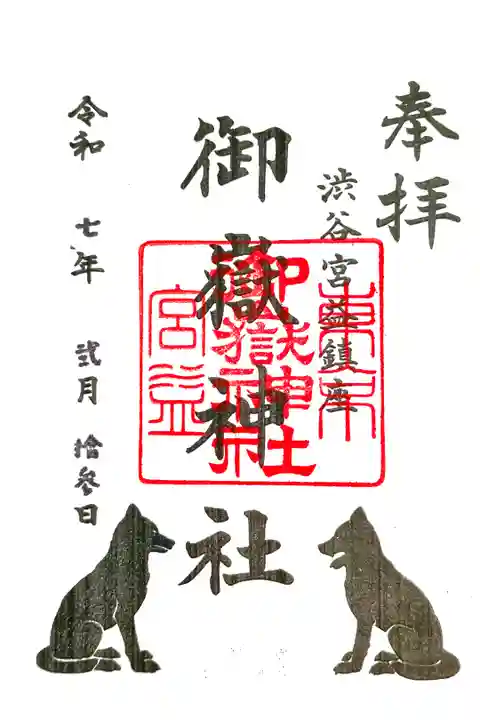 奉拝
渋谷宮益鎮座
御嶽神社
東京
御嶽神社
宮益
令和 七年 弐月 拾参日